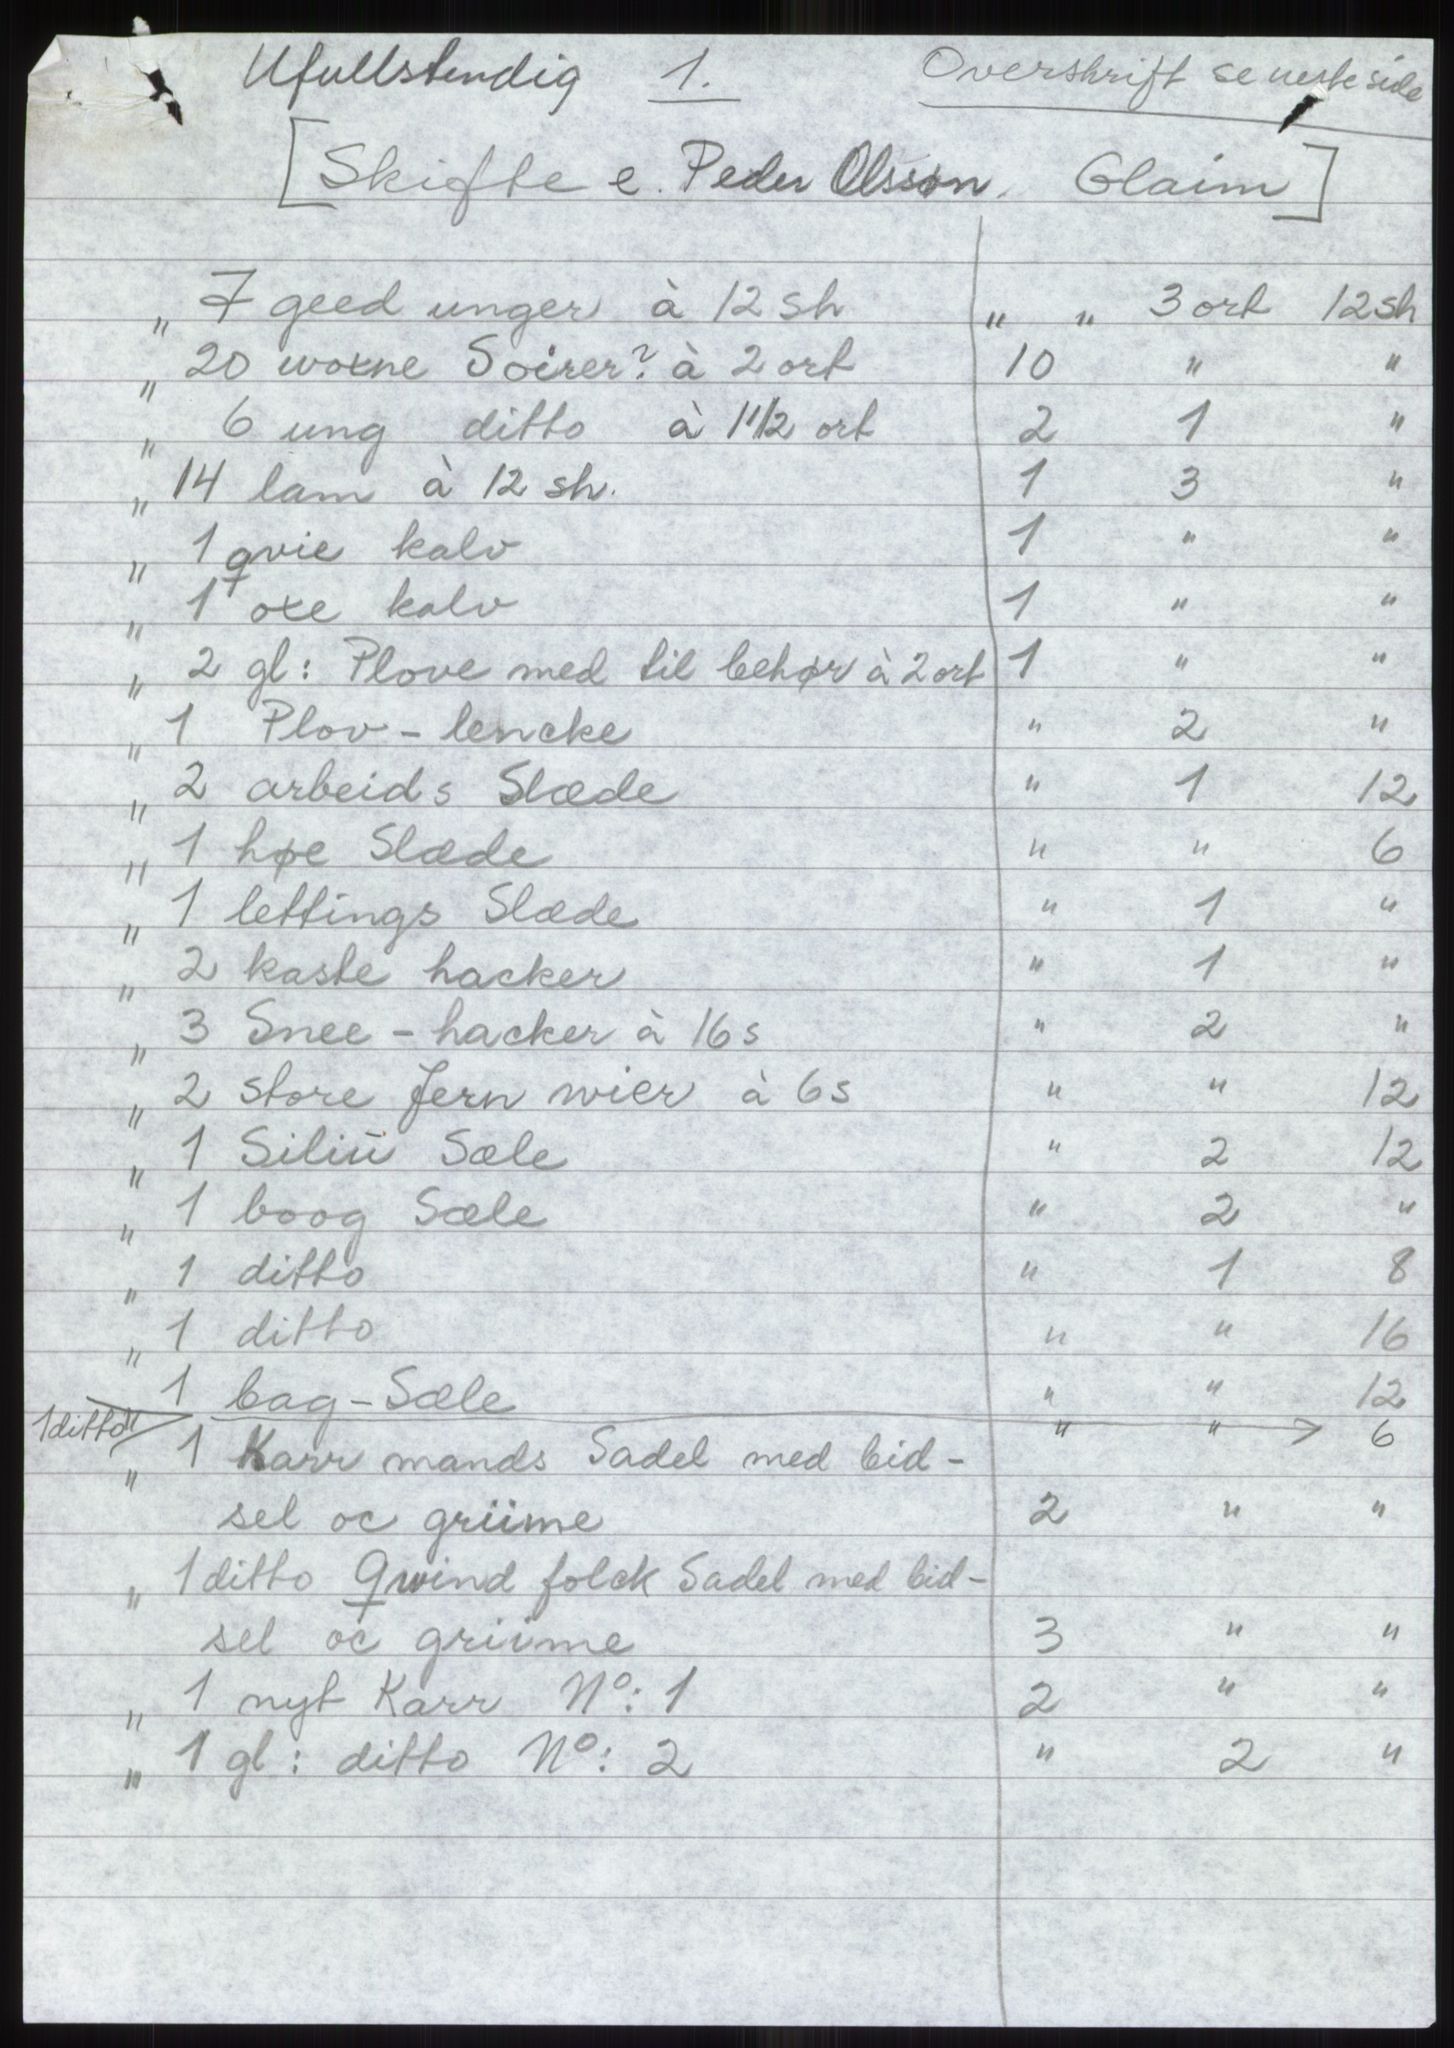 Ufullstendig 1. Overskrift se neste side
[Skifte e. Peder Olsson. Glaim]
" 7 geed unger à 12 sh " " 3 ort 12 sh
" 20 woxne Soirer? à 2 ort 10 " "
" 6 ung ditto à 1 1/2 ort 2 1 "
" 14 lam à 12 sh. 1 3 "
" 1 qvie kalv 1 " "
" 1 oxe kalv 1 " "
" 2 gl: Plove med til behør à 2 ort 1 " "
" 1 Plov-lencke " 2 "
" 2 arbeids Slæde " 1 12
" 1 høe Slæde " " 6
" 1 lettings Slæde " 1 "
" 2 kaste hacker " 1 "
" 3 Snee-hacker à 16 s " 2 "
" 2 store Jern wier à 6 s " " 12
" 1 Siliū Sæle " 2 12
" 1 boog Sæle " 2 "
" 1 ditto " 1 8
" 1 ditto " " 16
1 bag-Sæle " " 12
1 ditto " " " → 6
" 1 Karr mands Sadel med bid-
sel oc griime 2 " "
" 1 ditto Qwind folck Sadel med bid-
sel oc griime 3 " "
" 1 nyt Karr No: 1 2 " "
" 1 gl: ditto No: 2 " 2 "